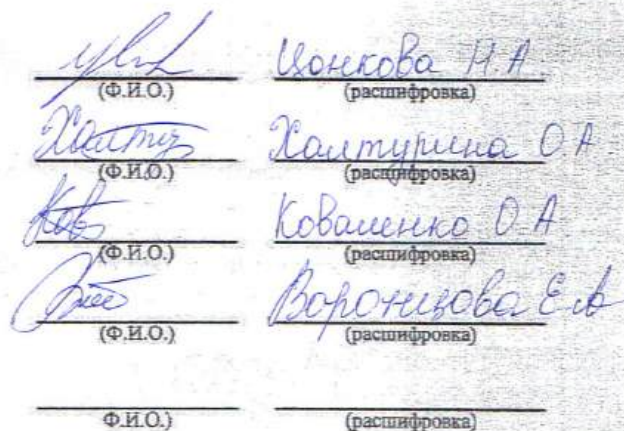 Цонкова Н.А
(Ф.И.О.) (расшифровка)
Халтурина О.А
(Ф.И.О.) (расшифровка)
Коваленко О.А
(Ф.И.О.) (расшифровка)
Воронцова Е.А
(Ф.И.О.) (расшифровка)
Ф.И.О.) (расшифровка)